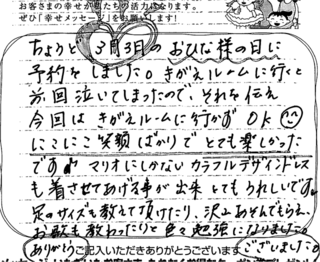 お客さまの幸せが私たちの活力になります。
ぜひ「幸せメッセージ」をお願いします!
ちょうど 3月3日の おひな様の日に
予約をしました。きがえルームに行くと
前回泣いてしまったので、それを伝え
今回は きがえルームに行かず OK
にこにこ笑顔ばかりで とても楽しかった
です♪ マリオにしかない カラフルデザインドレス
も着させてあげる事が出来 とてもうれしいです。
足のサイズも教えて頂けたり、沢山あそんでもらえ、
お歌も教わったりと色々勉強になりました。
ありがとう ご記入いただきありがとうございます ございました。